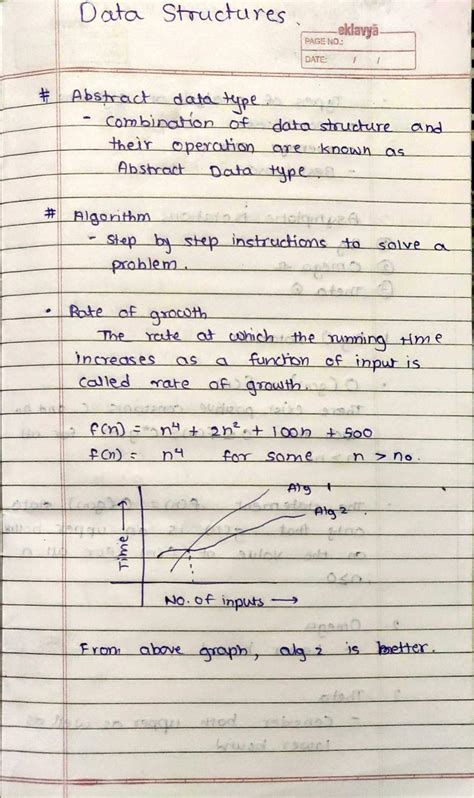 Data Structures.
eklavyā
PAGE NO.:
DATE: / /
# Abstract data type
- Combination of data structure and
their operation are known as
Abstract Data type
# Algorithm
- Step by step instructions to solve a
problem.
• Rate of growth
The rate at which the running time
increases as a function of input is
called rate of growth.
f(n) = n⁴ + 2n² + 100n + 500
f(n) = n⁴ for some n > no.
Alg 1
Alg 2
Time →
No. of inputs →
From above graph, alg 2 is better.